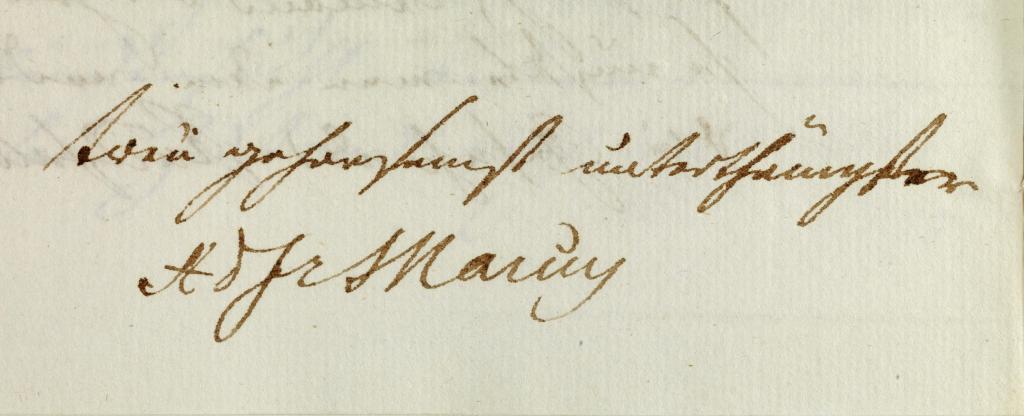 treu gehorsamst unterthänigster
A d Fr Maruy